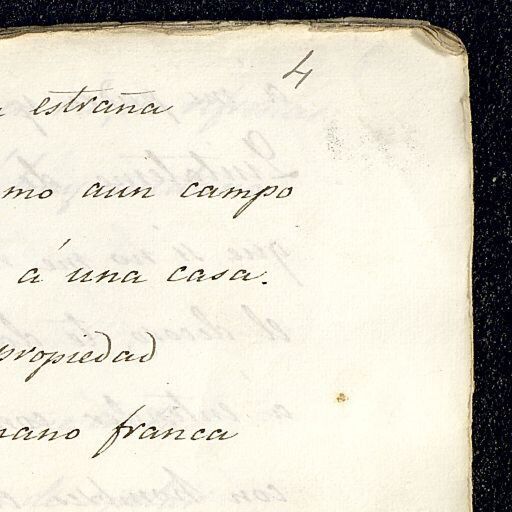 4
estraña
mo aun campo
á una casa.
propiedad
mano franca